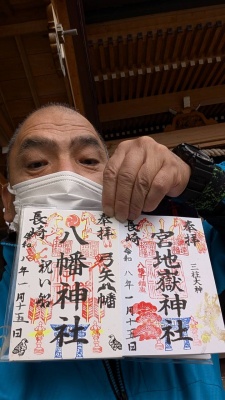 奉拝
宮地嶽神社
三柱大神
長崎
令和八年一月十五日
奉拝
弓矢八幡
八幡神社
長崎
祝い船
令和八年一月十五日